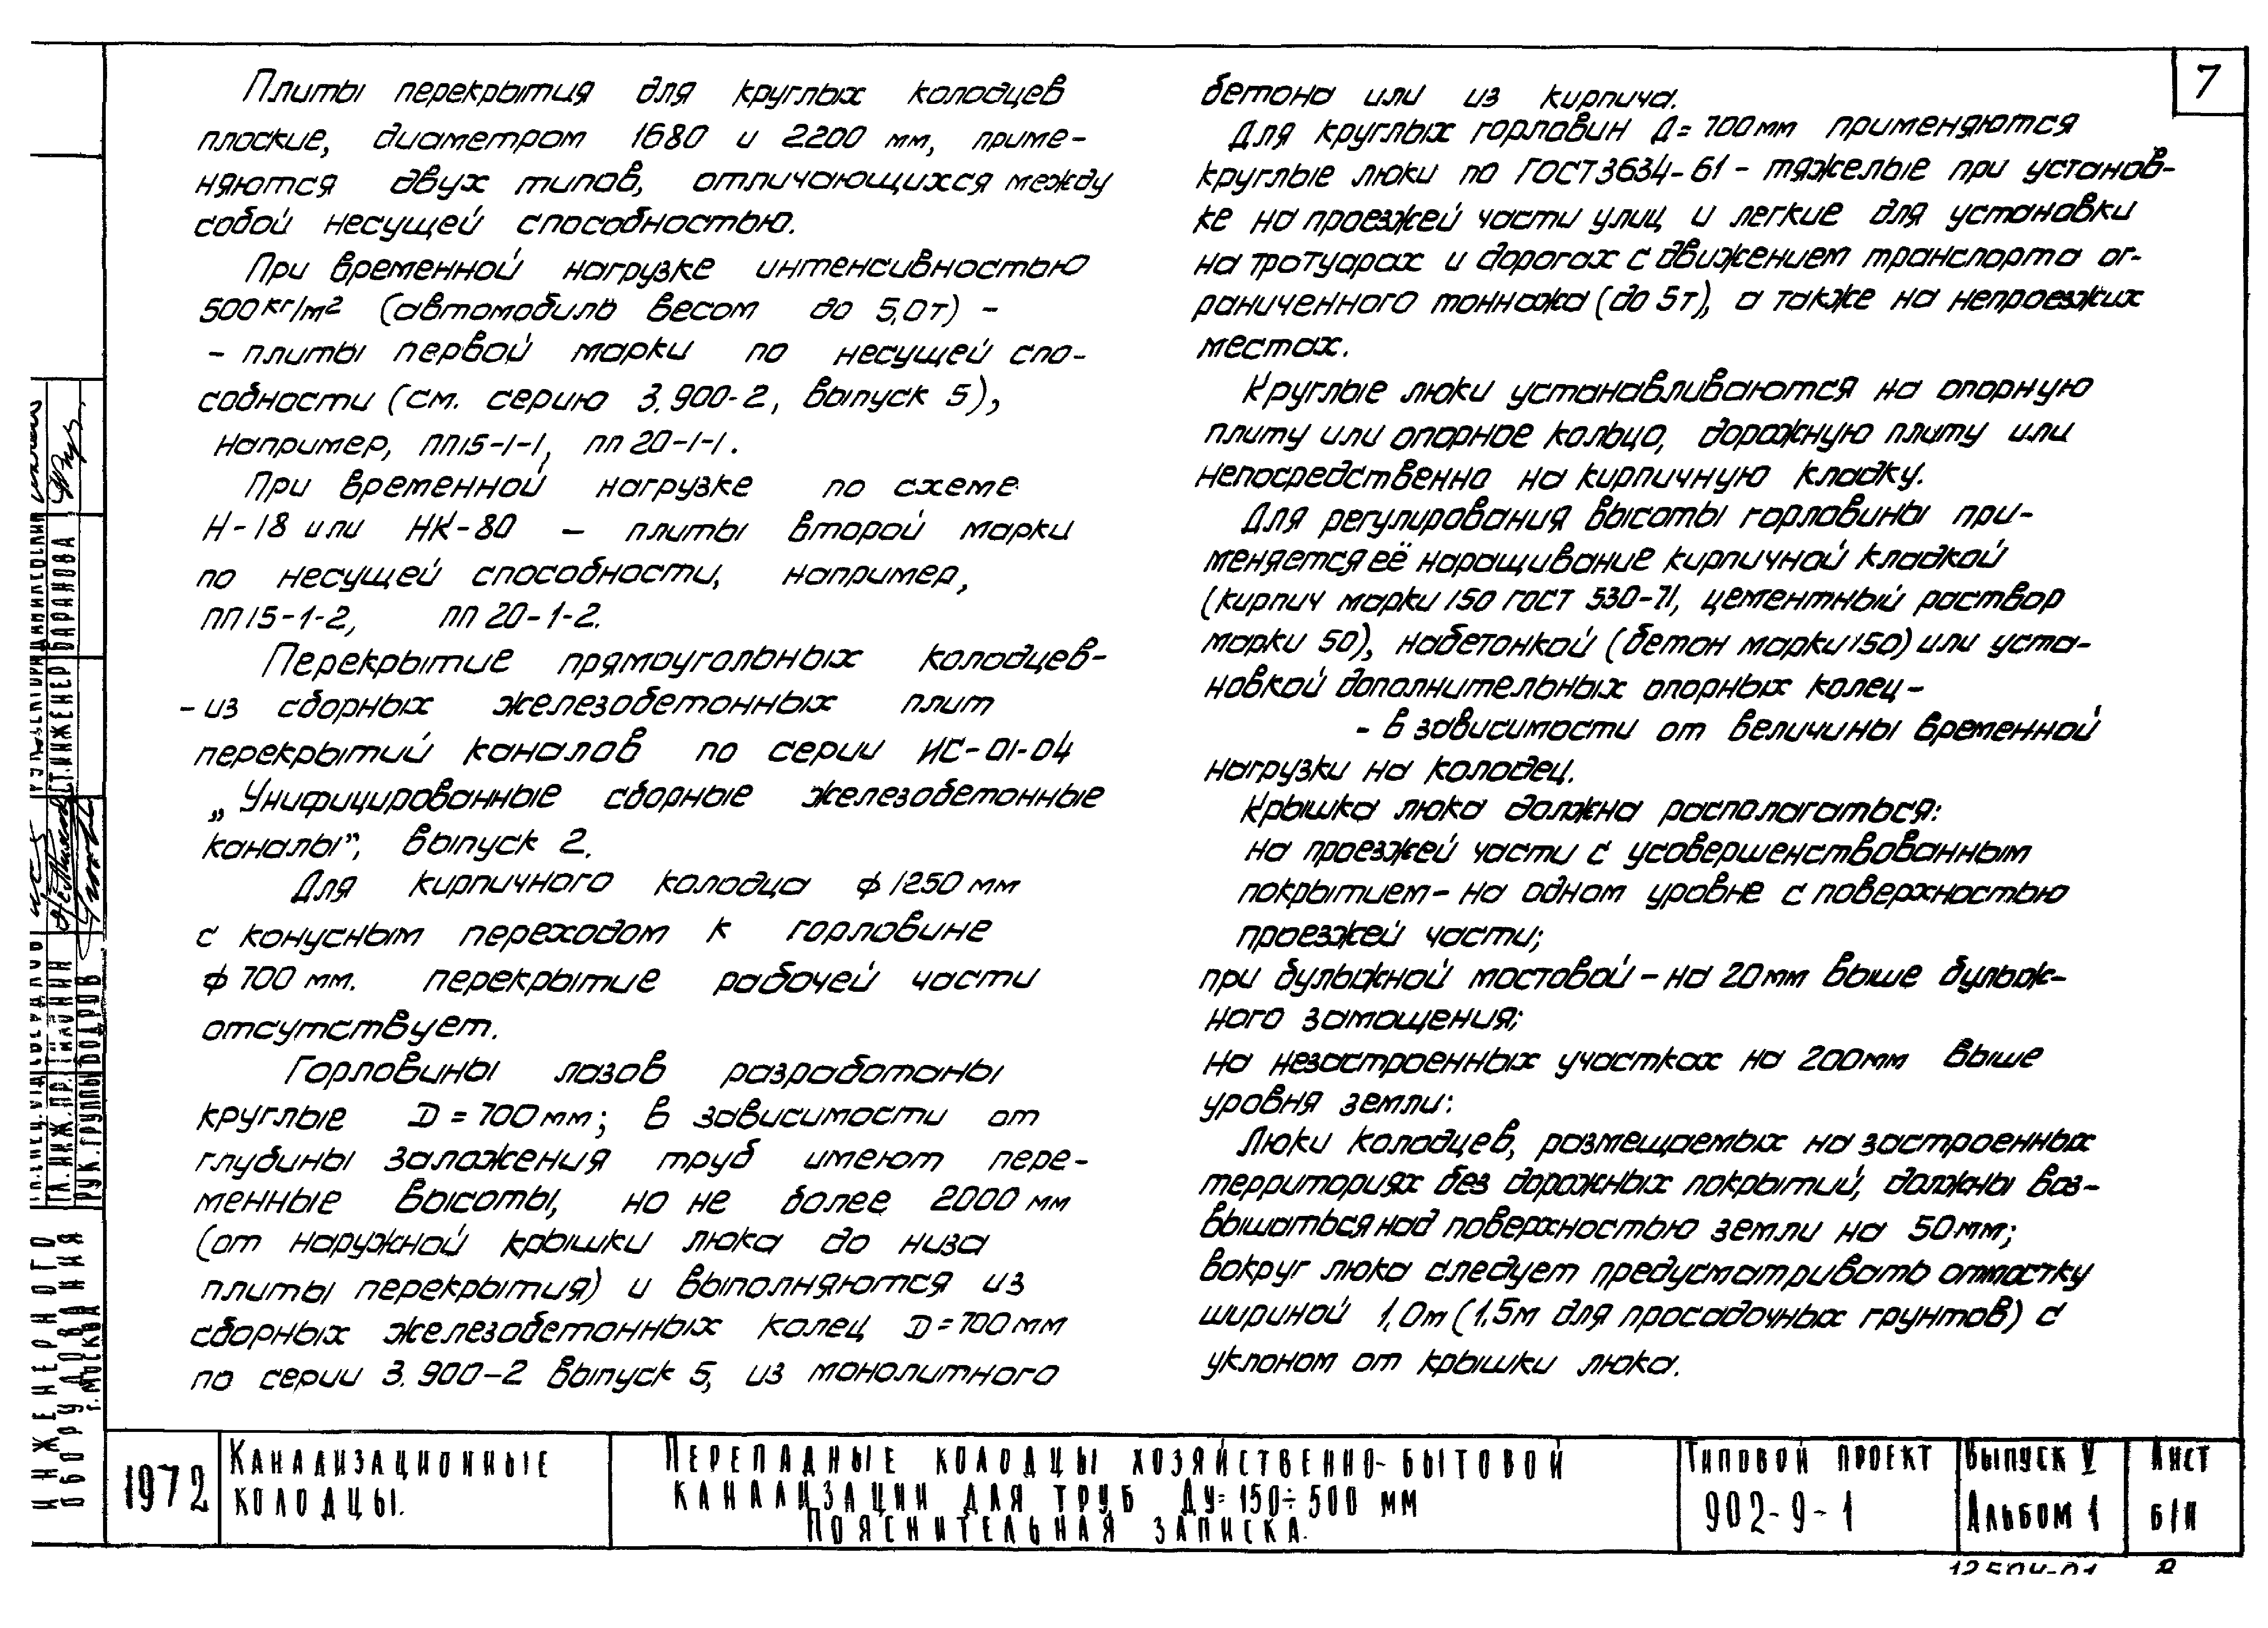 7
Плиты перекрытия для круглых колодцев
плоские, диаметром 1680 и 2200 мм, приме-
няются двух типов, отличающихся между
собой несущей способностью.
При временной нагрузке интенсивностью
500 кг/м² (автомобиль весом до 5,0т) -
- плиты первой марки по несущей спо-
собности (см. серию 3.900-2, выпуск 5),
например, ПП15-1-1, ПП 20-1-1.
При временной нагрузке по схеме
Н-18 или НК-80 - плиты второй марки
по несущей способности, например,
ПП15-1-2, ПП 20-1-2.
Перекрытие прямоугольных колодцев-
- из сборных железобетонных плит
перекрытий каналов по серии ИС-01-04
„Унифицированные сборные железобетонные
каналы", выпуск 2.
Для кирпичного колодца ф 1250 мм
с конусным переходом к горловине
ф 700 мм. перекрытие рабочей части
отсутствует.
Горловины лазов разработаны
круглые D = 700 мм; в зависимости от
глубины заложения труб имеют пере-
менные высоты, но не более 2000 мм
(от наружной крышки люка до низа
плиты перекрытия) и выполняются из
сборных железобетонных колец D = 700 мм
по серии 3.900-2 выпуск 5, из монолитного
бетона или из кирпича.
Для круглых горловин Д = 700 мм применяются
круглые люки по ГОСТ 3634-61 - тяжелые при установ-
ке на проезжей части улиц и легкие для установки
на тротуарах и дорогах с движением транспорта ог-
раниченного тоннажа (до 5т), а также на непроезжих
местах.
Круглые люки устанавливаются на опорную
плиту или опорное кольцо, дорожную плиту или
непосредственно на кирпичную кладку.
Для регулирования высоты горловины при-
меняется её наращивание кирпичной кладкой
(кирпич марки 150 ГОСТ 530-71, цементный раствор
марки 50), набетонкой (бетон марки 150) или уста-
новкой дополнительных опорных колец -
- в зависимости от величины временной
нагрузки на колодец.
Крышка люка должна располагаться:
на проезжей части с усовершенствованным
покрытием - на одном уровне с поверхностью
проезжей части;
при булыжной мостовой - на 20 мм выше булыж-
ного замощения;
на незастроенных участках на 200мм выше
уровня земли:
Люки колодцев, размещаемых на застроенных
территориях без дорожных покрытий, должны воз-
вышаться над поверхностью земли на 50 мм;
вокруг люка следует предусматривать отмостку
шириной 1,0 м (1,5м для просадочных грунтов) с
уклоном от крышки люка.
ИНЖЕНЕРНОГО
ОБОРУДОВАНИЯ
г. МОСКВА
ГЛ. ИНЖ. ПР.
РУК. ГРУППЫ ВОДРОВ
СТ. ИНЖЕНЕР БАРАНОВА
1972
КАНАЛИЗАЦИОННЫЕ
КОЛОДЦЫ.
ПЕРЕПАДНЫЕ КОЛОДЦЫ ХОЗЯЙСТВЕННО-БЫТОВОЙ
КАНАЛИЗАЦИИ ДЛЯ ТРУБ ДУ=150÷500 ММ
ПОЯСНИТЕЛЬНАЯ ЗАПИСКА.
ТИПОВОЙ ПРОЕКТ
902-9-1
ВЫПУСК V
АЛЬБОМ 1
ЛИСТ
Б/Н
12504-01 8